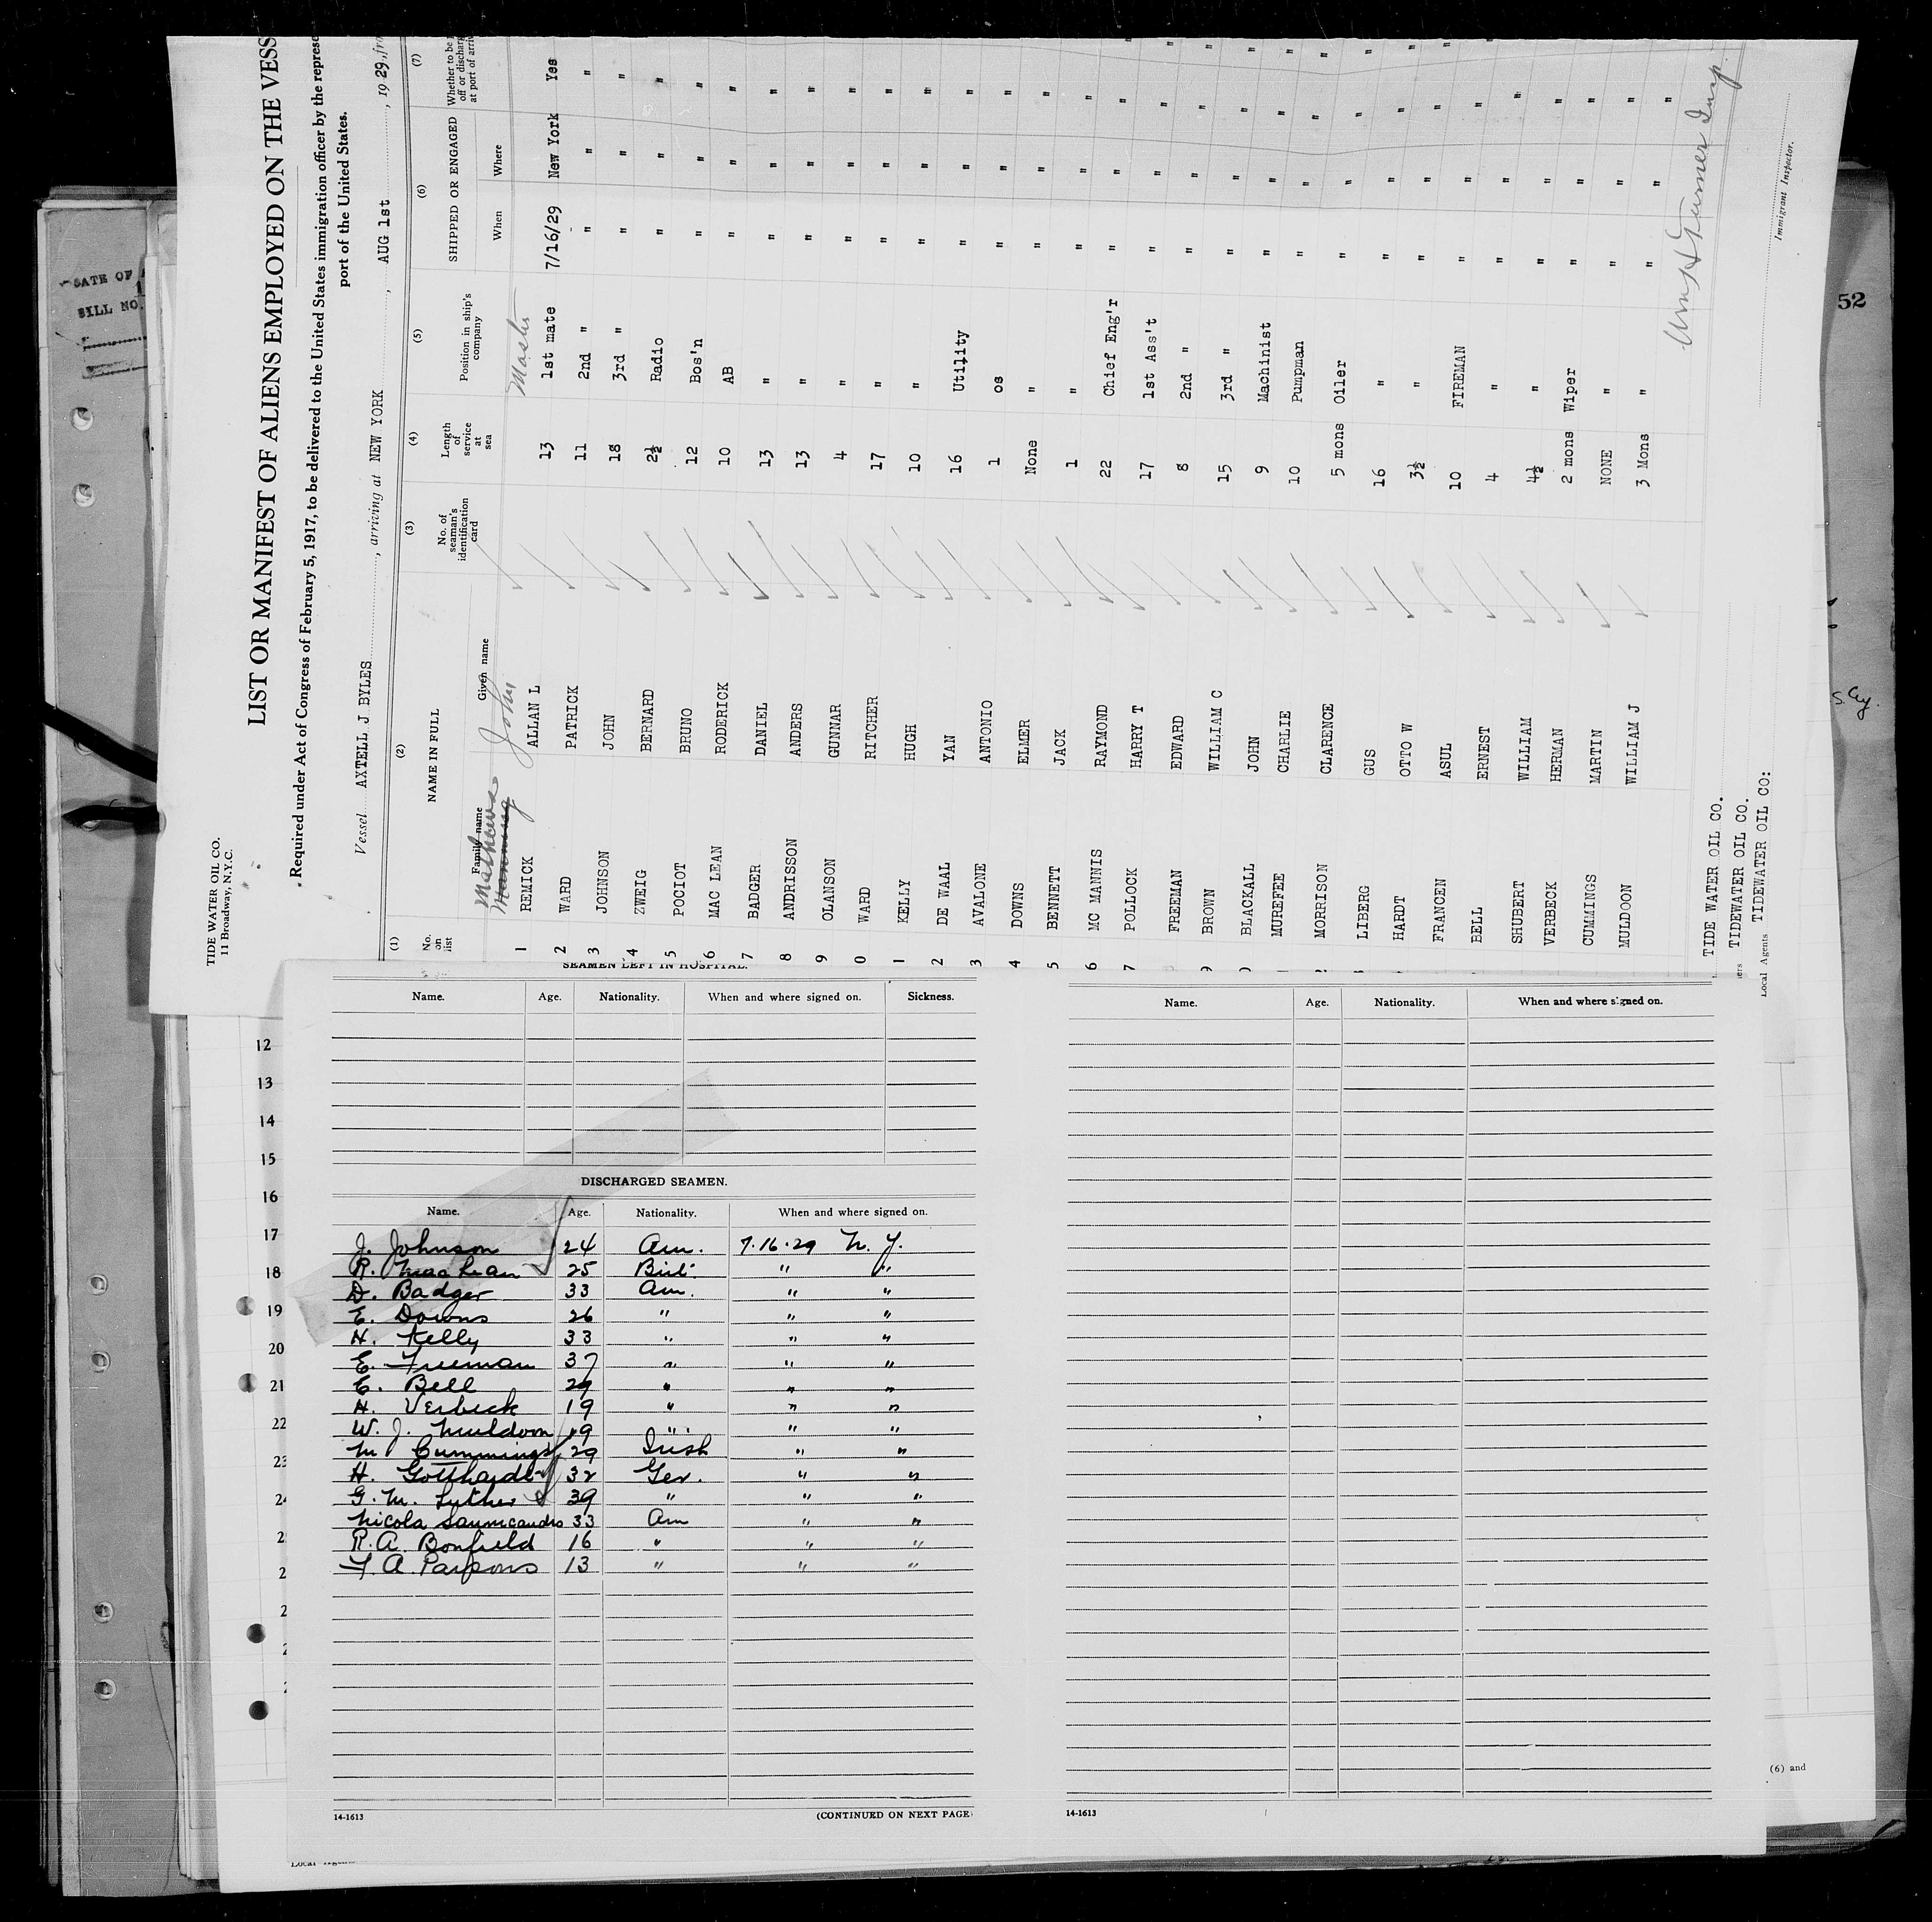 TIDE WATER OIL CO.
11 Broadway, N.Y.C.
LIST OR MANIFEST OF ALIENS EMPLOYED ON THE VESS
Required under Act of Congress of February 5, 1917, to be delivered to the United States immigration officer by the represe
port of the United States.
Vessel AXTELL J BYLES, arriving at NEW YORK, AUG 1st, 1929, fro
(1) (2) (3) (4) (5) (6) (7)
No. on list NAME IN FULL Family name Given name No. of seaman's identification card Length of service at sea Position in ship's company SHIPPED OR ENGAGED When Where Whether to be off or discharg at port of arriv
Manning Mathews John Master
1 REMICK ALLAN L 13 1st mate 7/16/29 New York Yes
2 WARD PATRICK 11 2nd " " " "
3 JOHNSON JOHN 18 3rd " " " "
4 ZWEIG BERNARD 2½ Radio " " "
5 POCIOT BRUNO 12 Bos'n " " "
6 MAC LEAN RODERICK 10 AB " " "
7 BADGER DANIEL 13 " " " "
8 ANDRISSON ANDERS 13 " " " "
9 OLANSON GUNNAR 4 " " " "
0 WARD RITCHER 17 " " " "
1 KELLY HUGH 10 " " " "
2 DE WAAL YAN 16 Utility " " "
3 AVALONE ANTONIO 1 os " " "
4 DOWNS ELMER None " " " "
5 BENNETT JACK 1 " " " "
6 MC MANNIS RAYMOND 22 Chief Eng'r " " "
7 POLLOCK HARRY T 17 1st Ass't " " "
FREEMAN EDWARD 8 2nd " " " "
9 BROWN WILLIAM C 15 3rd " " " "
BLACKALL JOHN 9 Machinist " " "
MUREFEE CHARLIE 10 Pumpman " " "
MORRISON CLARENCE 5 mons Oiler " " "
LIBERG GUS 16 " " " "
HARDT OTTO W 3½ " " " "
FRANCEN ASUL 10 FIREMAN " " "
BELL ERNEST 4 " " " "
SHUBERT WILLIAM 4½ " " " "
VERBECK HERMAN 2 mons Wiper " " "
CUMMINGS MARTIN NONE " " " "
MULDOON WILLIAM J 3 Mons " " " "
TIDE WATER OIL CO.
ers TIDEWATER OIL CO.
Local Agents TIDEWATER OIL CO:
Immigrant Inspector.
BILL NO.
52
SEAMEN LEFT IN HOSPITAL.
Name. Age. Nationality. When and where signed on. Sickness.
12
13
14
15
16
17
18
19
20
21
22
23
DISCHARGED SEAMEN.
Name. Age. Nationality. When and where signed on.
J. Johnson 24 Am. 7.16.29 N. Y.
R. MacLean 25 Brit. " "
D. Badger 33 Am. " "
E. Downs 26 " " "
H. Kelly 33 " " "
E. Freeman 37 " " "
E. Bell 29 " " "
H. Verbeck 19 " " "
W. J. Muldoon 19 " " "
M Cummings 29 Irish " "
H. Gotthardt 32 Ger. " "
G. M. Luther 39 " " "
Nicola 33 Am " "
R. A. Bonfield 16 " " "
F. A. Parsons 13 " " "
14-1613 (CONTINUED ON NEXT PAGE)
Name. Age. Nationality. When and where signed on.
14-1613
(6) and